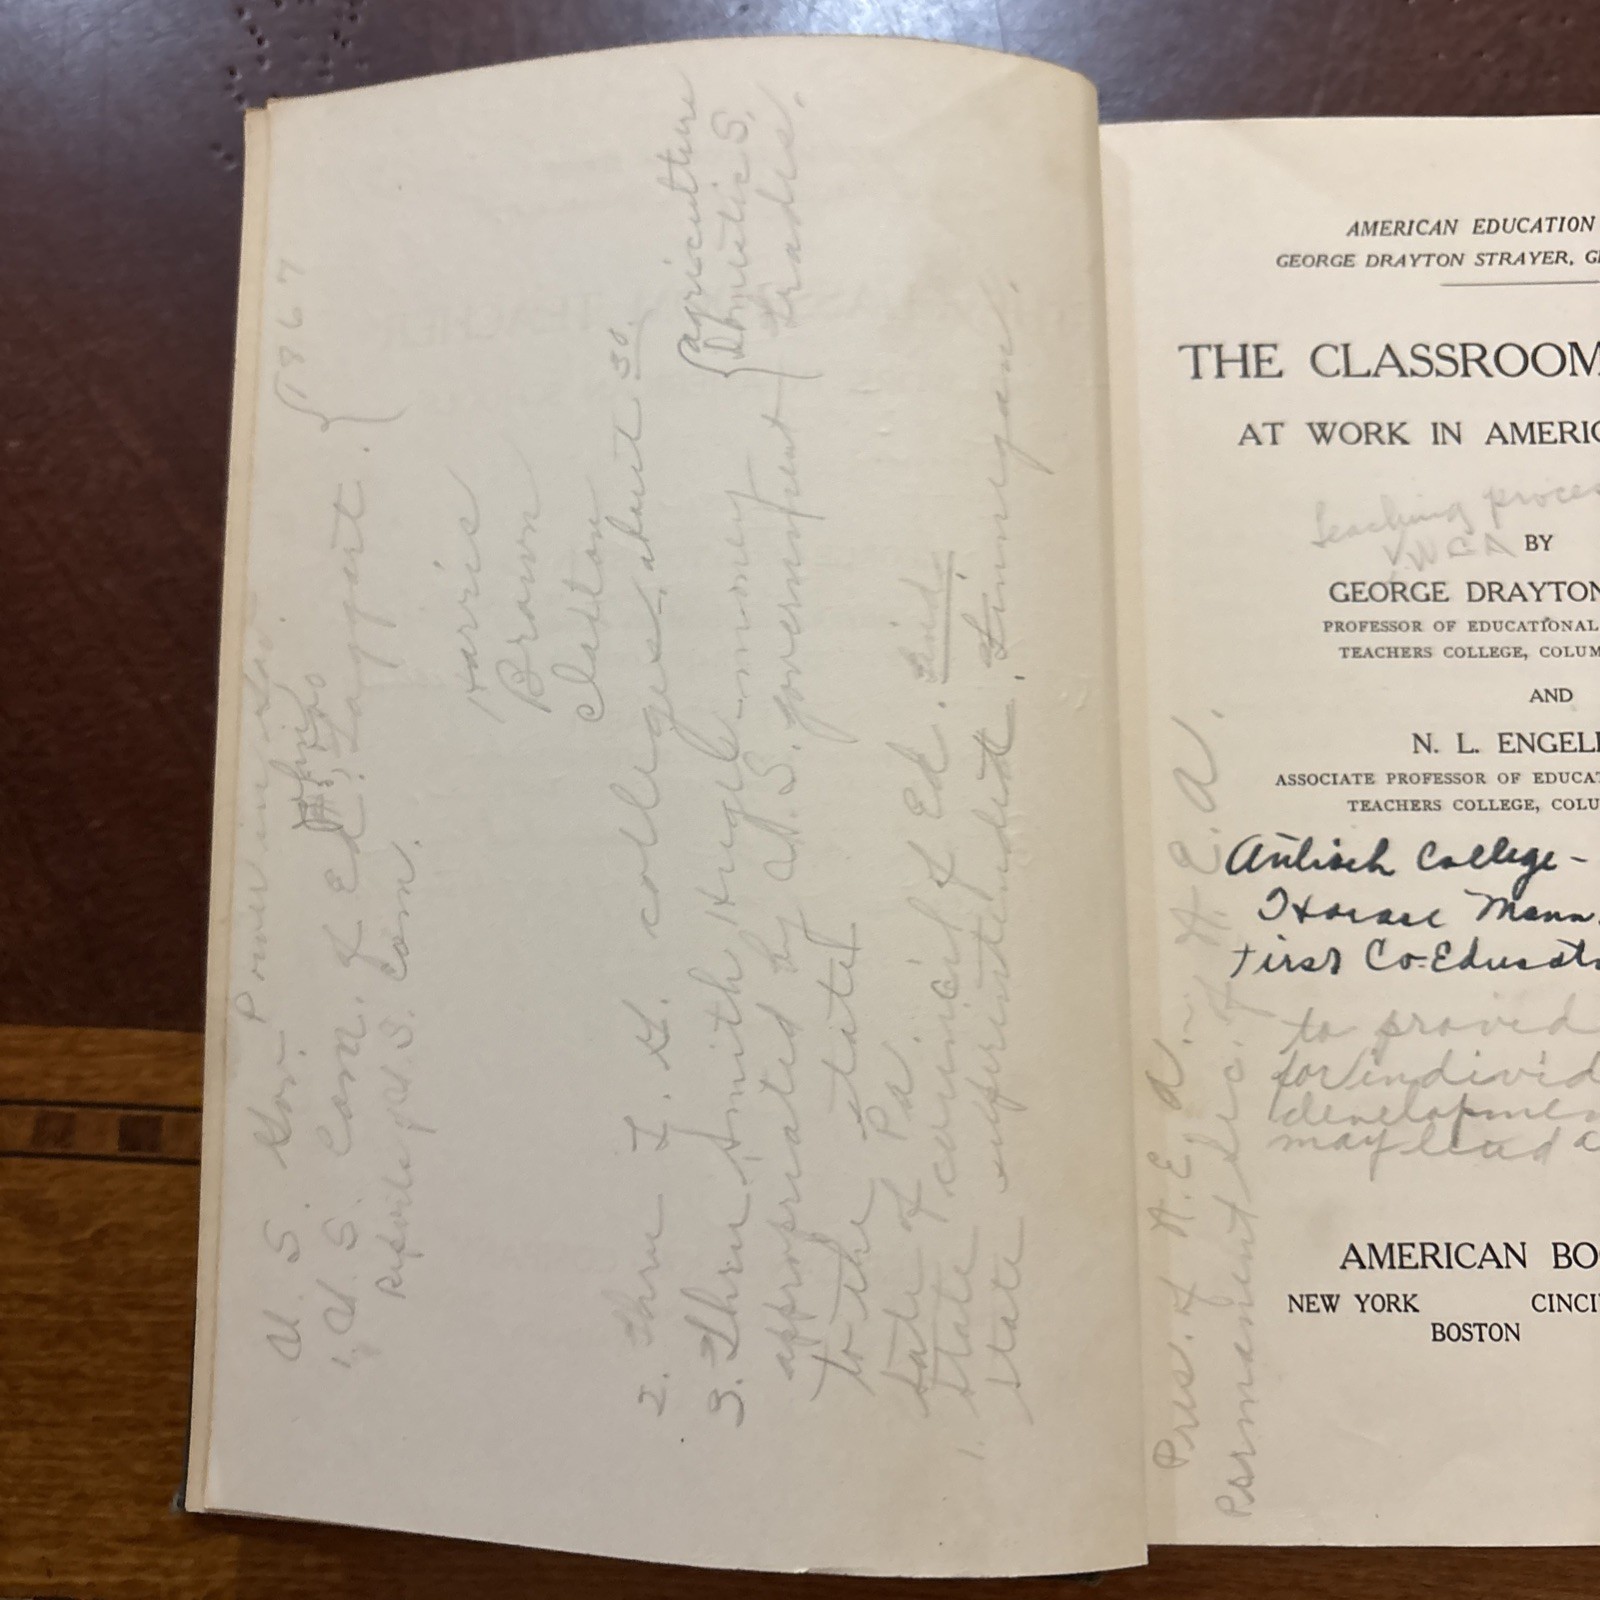 U. S. Gov. Power in
1867
U. S. Com. of Ed.
Reports of U. S. Com.
Harris
Brown
Claxton
2. Thru L. G. colleges, about 30.
3. Thru Smith Hugh - money
appropriated by U. S. government
agriculture
Domestic S.
trades.
to the states
State of Pa.
1. State council of Ed.
State superintendent.
AMERICAN EDUCATION
GEORGE DRAYTON STRAYER, G
THE CLASSROOM
AT WORK IN AMERIC
teaching proces
Y.W.C.A
BY
GEORGE DRAYTON
PROFESSOR OF EDUCATIONAL
TEACHERS COLLEGE, COLUM
AND
N. L. ENGEL
ASSOCIATE PROFESSOR OF EDUCA
TEACHERS COLLEGE, COLU
Antioch College -
Horace Mann.
First Co-Educat
to provid
for individ
developmen
may lead
AMERICAN BO
NEW YORK CINCI
BOSTON
Pres. of N. E. A.
Permanent Sec. of N. E. A.